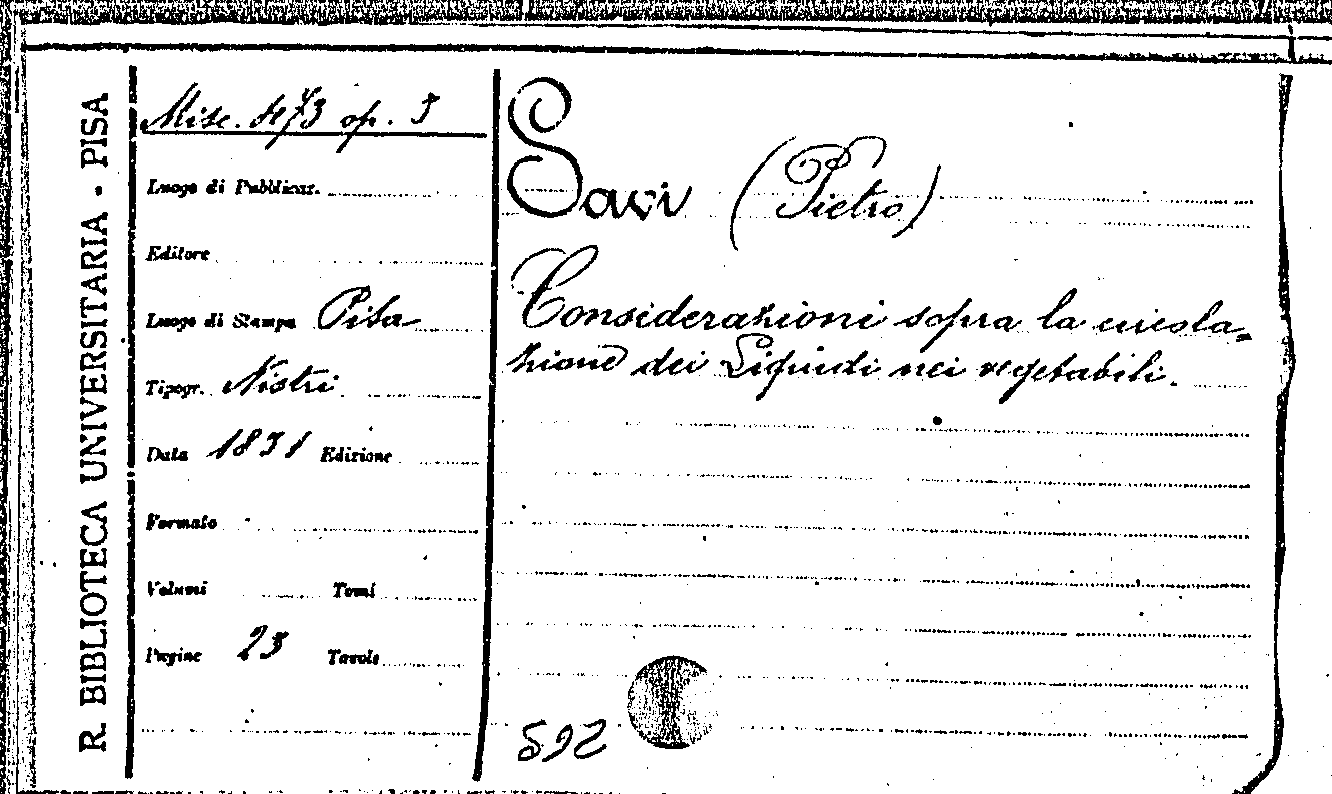 R. BIBLIOTECA UNIVERSITARIA - PISA
Misc. 473 op. 5
Luogo di Pubblicaz.
Editore
Luogo di Stampa Pisa
Tipogr. Nistri
Data 1831 Edizione
Formato
Volumi Tomi
Pagine 23 Tavole
Savi (Pietro)
Considerazioni sopra la circola=
zione dei Liquidi nei vegetabili.
592